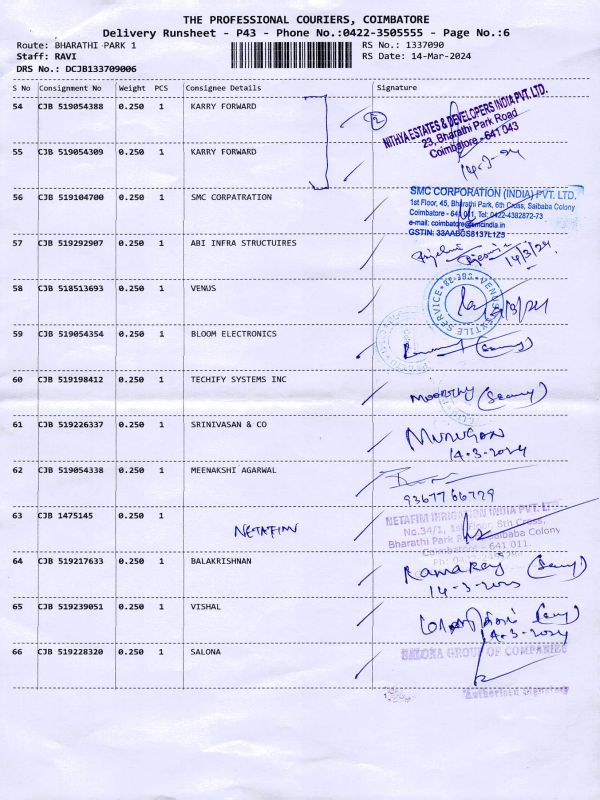 THE PROFESSIONAL COURIERS, COIMBATORE
Delivery Runsheet - P43 - Phone No.:0422-3505555 - Page No.:6
Route: BHARATHI PARK 1 RS No.: 1337090
Staff: RAVI RS Date: 14-Mar-2024
DRS No.: DCJB133709006
S No Consignment No Weight PCS Consignee Details Signature
54 CJB 519054388 0.250 1 KARRY FORWARD
2
NITHYA ESTATES & DEVELOPERS INDIA PVT. LTD.
23, Bharathi Park Road
Coimbatore - 641 043
55 CJB 519054309 0.250 1 KARRY FORWARD
56 CJB 519104700 0.250 1 SMC CORPATRATION
SMC CORPORATION (INDIA) PVT. LTD.
1st Floor, 45, Bharathi Park, 6th Cross, Saibaba Colony
Coimbatore - 641 011, Tel: 0422-4382872-73
e-mail: coimbatore@smcindia.in
57 CJB 519292907 0.250 1 ABI INFRA STRUCTUIRES
14/3/24
58 CJB 518513693 0.250 1 VENUS
59 CJB 519054354 0.250 1 BLOOM ELECTRONICS
60 CJB 519198412 0.250 1 TECHIFY SYSTEMS INC
MOORTHY
61 CJB 519226337 0.250 1 SRINIVASAN & CO
MURUGAN
14.3.2024
62 CJB 519054338 0.250 1 MEENAKSHI AGARWAL
9367766779
63 CJB 1475145 0.250 1 NETAFIM
NETAFIM IRRIGATION INDIA PVT. LTD.
No.34/1, 1st Floor, 8th Cross,
Bharathi Park Saibaba Colony
Coimbatore - 641 011.
64 CJB 519217633 0.250 1 BALAKRISHNAN
65 CJB 519239051 0.250 1 VISHAL
14.3.2024
66 CJB 519228320 0.250 1 SALONA
SALONA GROUP OF COMPANIES
Authorised Signatory